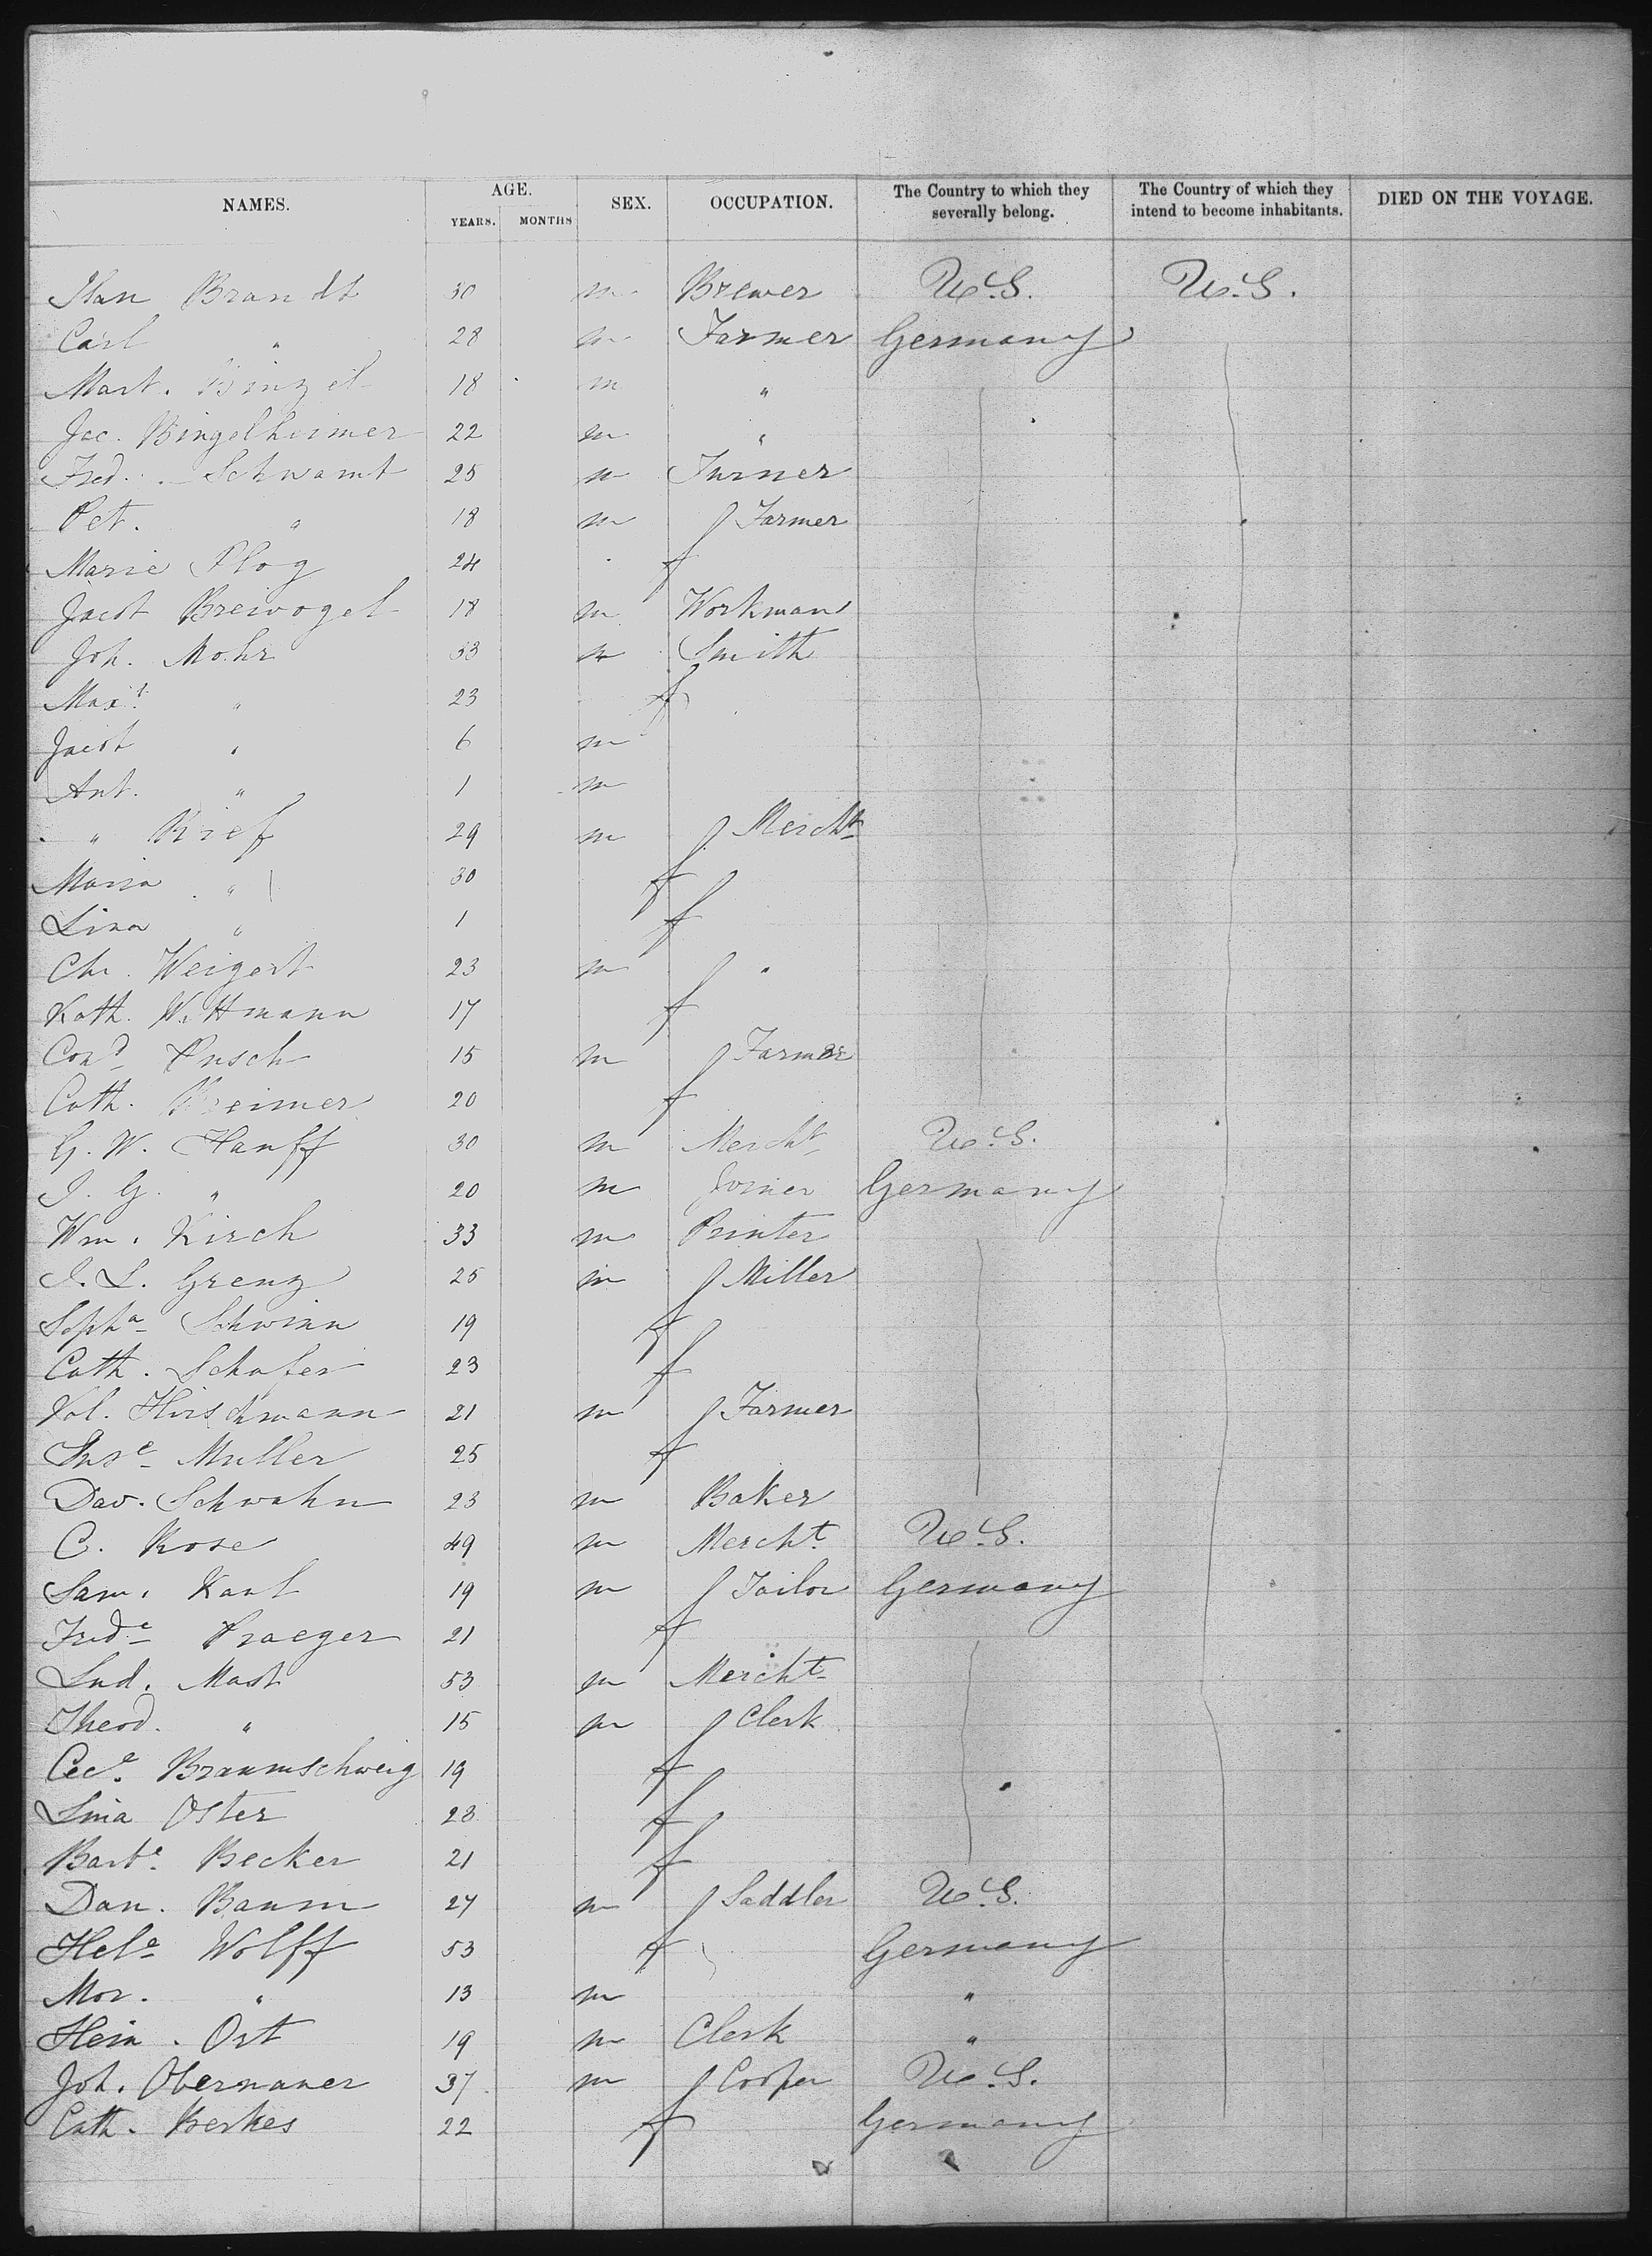 NAMES. AGE. YEARS. MONTHS SEX. OCCUPATION. The Country to which they severally belong. The Country of which they intend to become inhabitants. DIED ON THE VOYAGE.
Brandt 30 m Brewer U.S. U.S.
Carl " 28 m Farmer Germany
Mart. Binzel 18 m "
Jac. Bingelheimer 22 m "
Fred. Schwamt 25 m Turner
Pet. " 18 m Farmer
Marie Plog 24 f
Jacob Breivogel 18 m Workman
Joh. Mohr 33 m Smith
" 23 f
Jacob " 6 m
Ant. " 1 m
" Rief 29 m Mercht
Maria " 30 f
Lina " 1 f
Chr. Weigert 23 m "
Kath. Wittmann 17 f
Cond Pusch 15 m Farmer
Cath. 20 f
G. W. Hanff 30 m Mercht U.S.
J. G. " 20 m Joiner Germany
Wm. Kirsch 33 m Printer
J. L. Grenz 25 m Miller
Sopha Schwinn 19 f
Cath. Schafer 23 f
Hirschmann 21 m Farmer
Muller 25 f
Dav. Schwahn 23 m Baker
C. Rose 49 m Mercht U.S.
Sam. Karl 19 m Tailor Germany
Frede Praeger 21 f
Lud. Mast 53 m Mercht
Theod. " 15 m Clerk
Cece Braunschweig 19 f
Lina Oster 23 f
Barbe Becker 21 f
Dan. Baum 27 m Saddler U.S.
Hele Wolff 53 f Germany
Mor. " 13 m "
Hein. Ort 19 m Clerk "
Joh. Obernauer 37 m Cooper U.S.
Cath. Berkes 22 f Germany